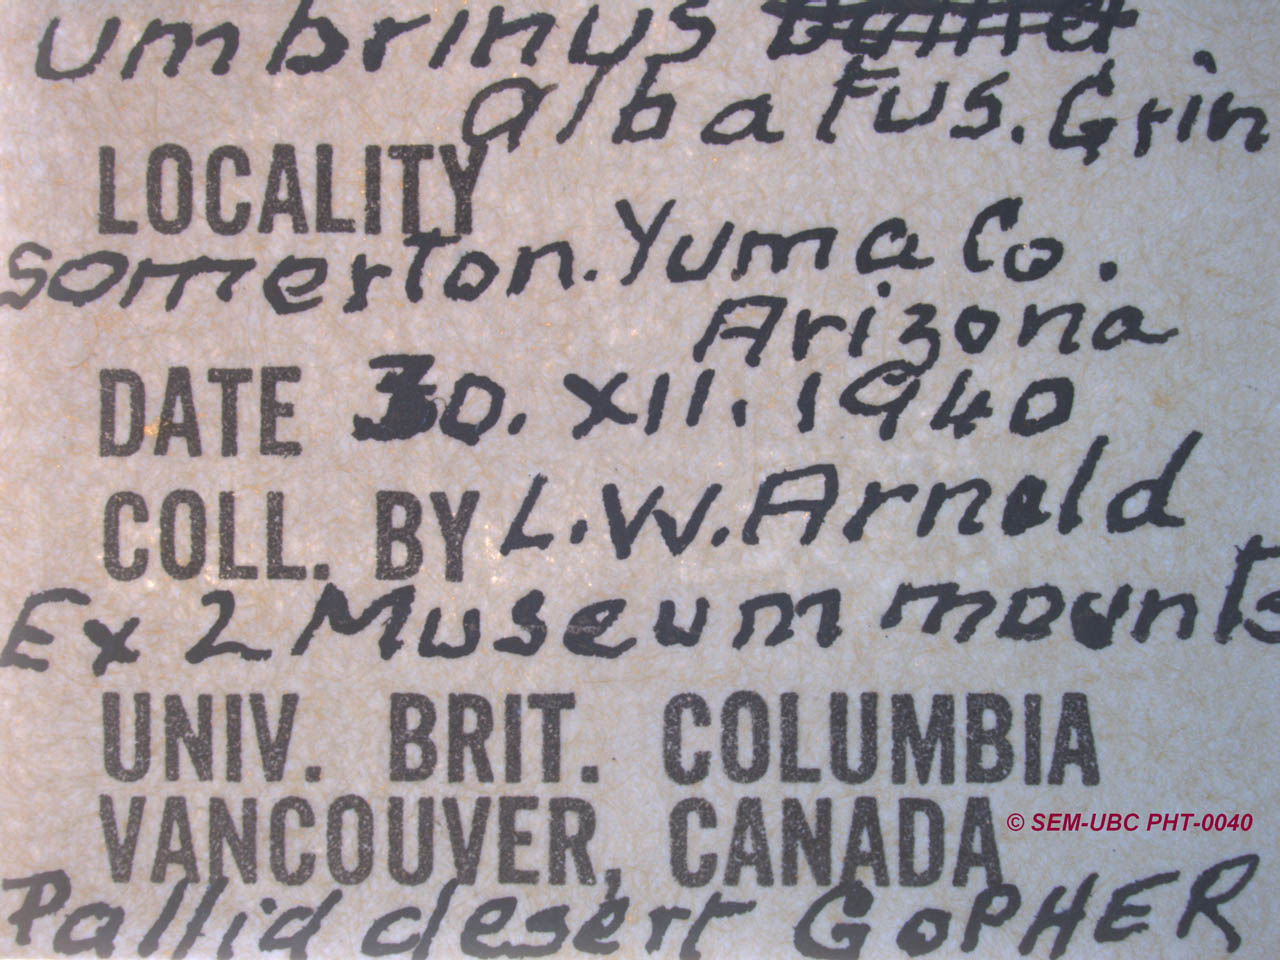 umbrinus
albatus. Grin
LOCALITY
Somerton. Yuma Co.
Arizona
DATE 30. XII. 1940
COLL. BY L. W. Arnold
Ex 2 Museum mounts
UNIV. BRIT. COLUMBIA
VANCOUVER, CANADA
© SEM-UBC PHT-0040
Pallid desert GoPHER